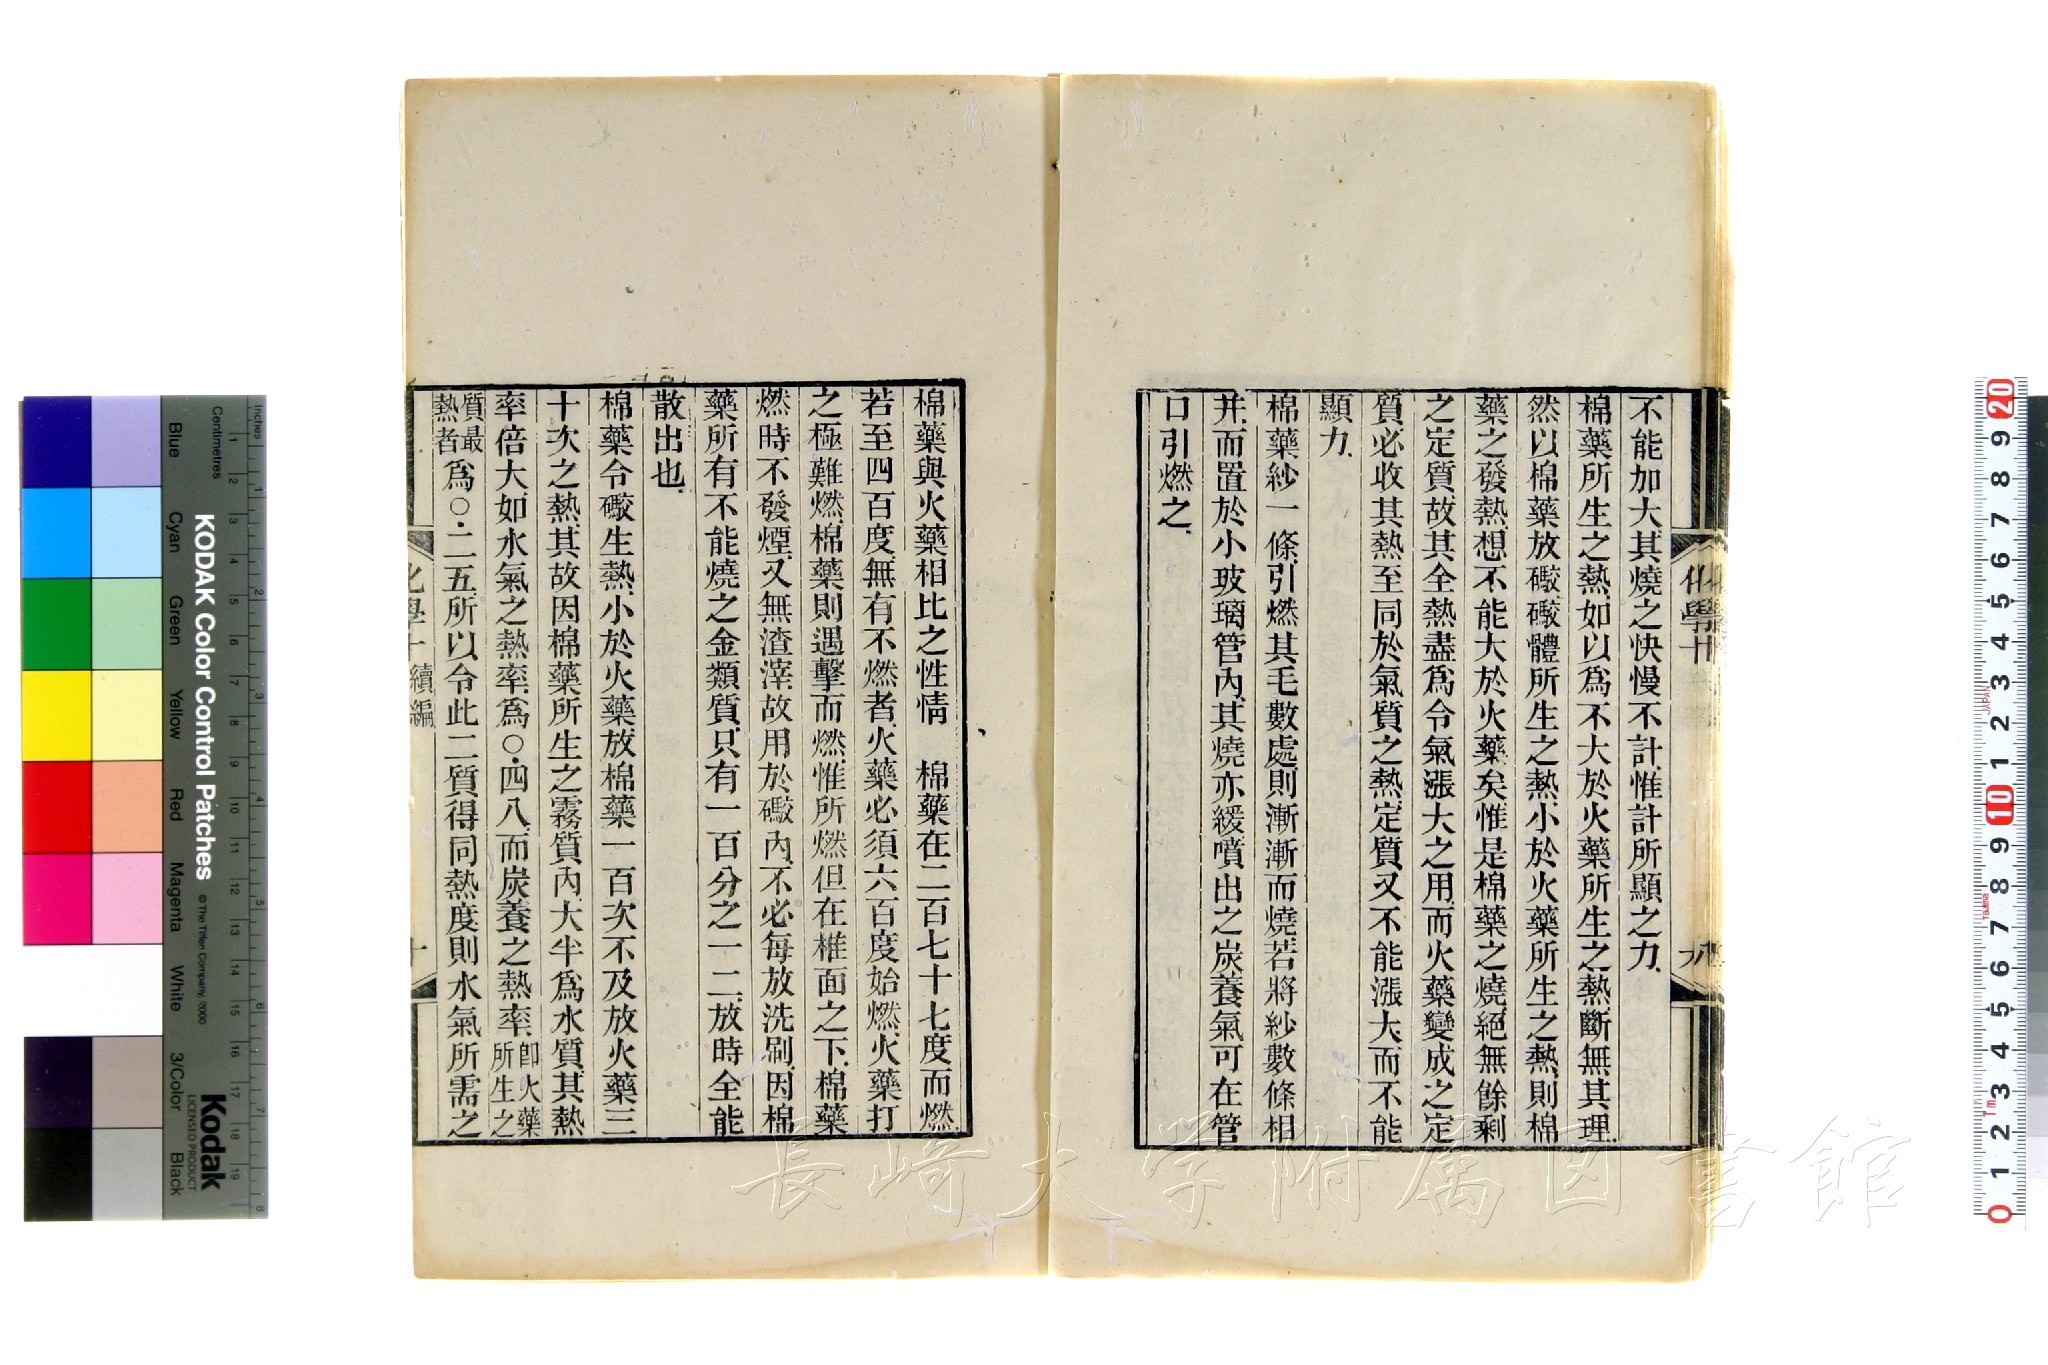 不能加大其燒之快慢不計惟計所顯之力
棉藥所生之熱如以為不大於火藥所生之熱斷無其理
然以棉藥放礮礮體所生之熱小於火藥所生之熱則棉
藥之發熱想不能大於火藥矣惟是棉藥之燒絕無餘剩
之定質故其全熱盡為令氣漲大之用而火藥變成之定
質必收其熱至同於氣質之熱定質又不能漲大而不能
顯力
棉藥紗一條引燃其毛數處則漸漸而燒若將紗數條相
幷而置於小玻璃管內其燒亦緩噴出之炭養氣可在管
口引燃之
化學十
棉藥與火藥相比之性情 棉藥在二百七十七度而燃
若至四百度無有不燃者火藥必須六百度始燃火藥打
之極難燃棉藥則遇擊而燃惟所燃但在椎面之下棉藥
燃時不發煙又無渣滓故用於礮內不必每放洗刷因棉
藥所有不能燒之金類質只有一百分之一二放時全能
散出也
棉藥令礮生熱小於火藥放棉藥一百次不及放火藥三
十次之熱其故因棉藥所生之霧質內大半為水質其熱
率倍大如水氣之熱率為○·四八而炭養之熱率卽火藥所生之
質最熱者為○·二五所以令此二質得同熱度則水氣所需之
化學十 續編
十
KODAK Color Control Patches
© The Tiffen Company, 2000
Kodak
LICENSED PRODUCT
Blue
Cyan
Green
Yellow
Red
Magenta
White
3/Color
Black
Inches
Centimetres
長崎大学附属図書館